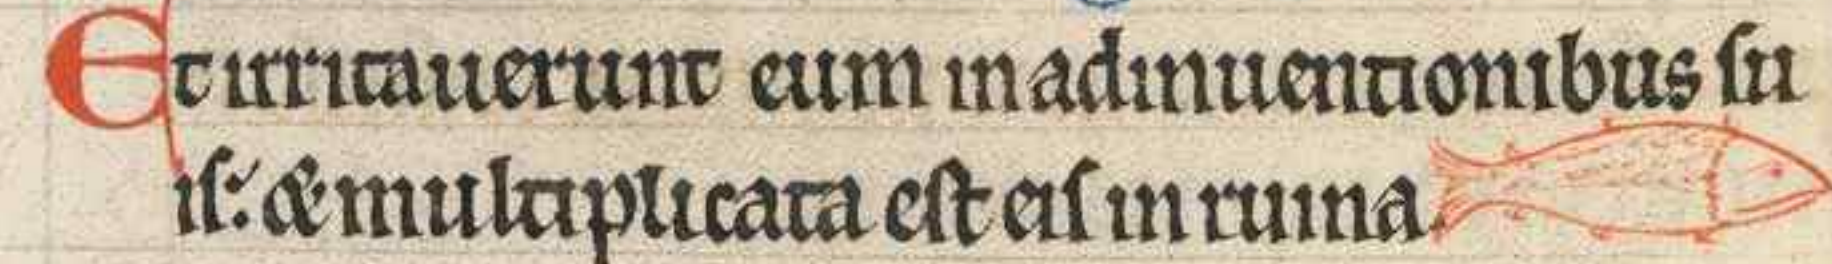 Et irritauerunt eum in adinuentionibus ſu
iſ: & multiplicata eſt eiſ in ruina.